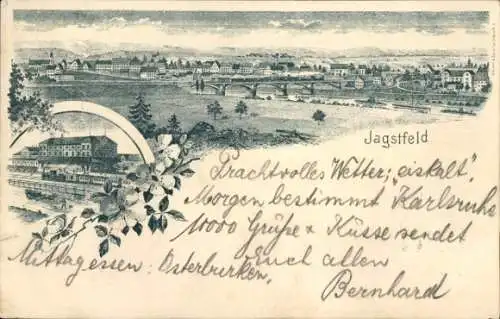 Jagstfeld
Prachtvolles Wetter; "eiskalt".
Morgen bestimmt Karlsruhe
1000 Grüße & Küsse sendet
Mittagessen: Osterburken. Euch allen
Bernhard